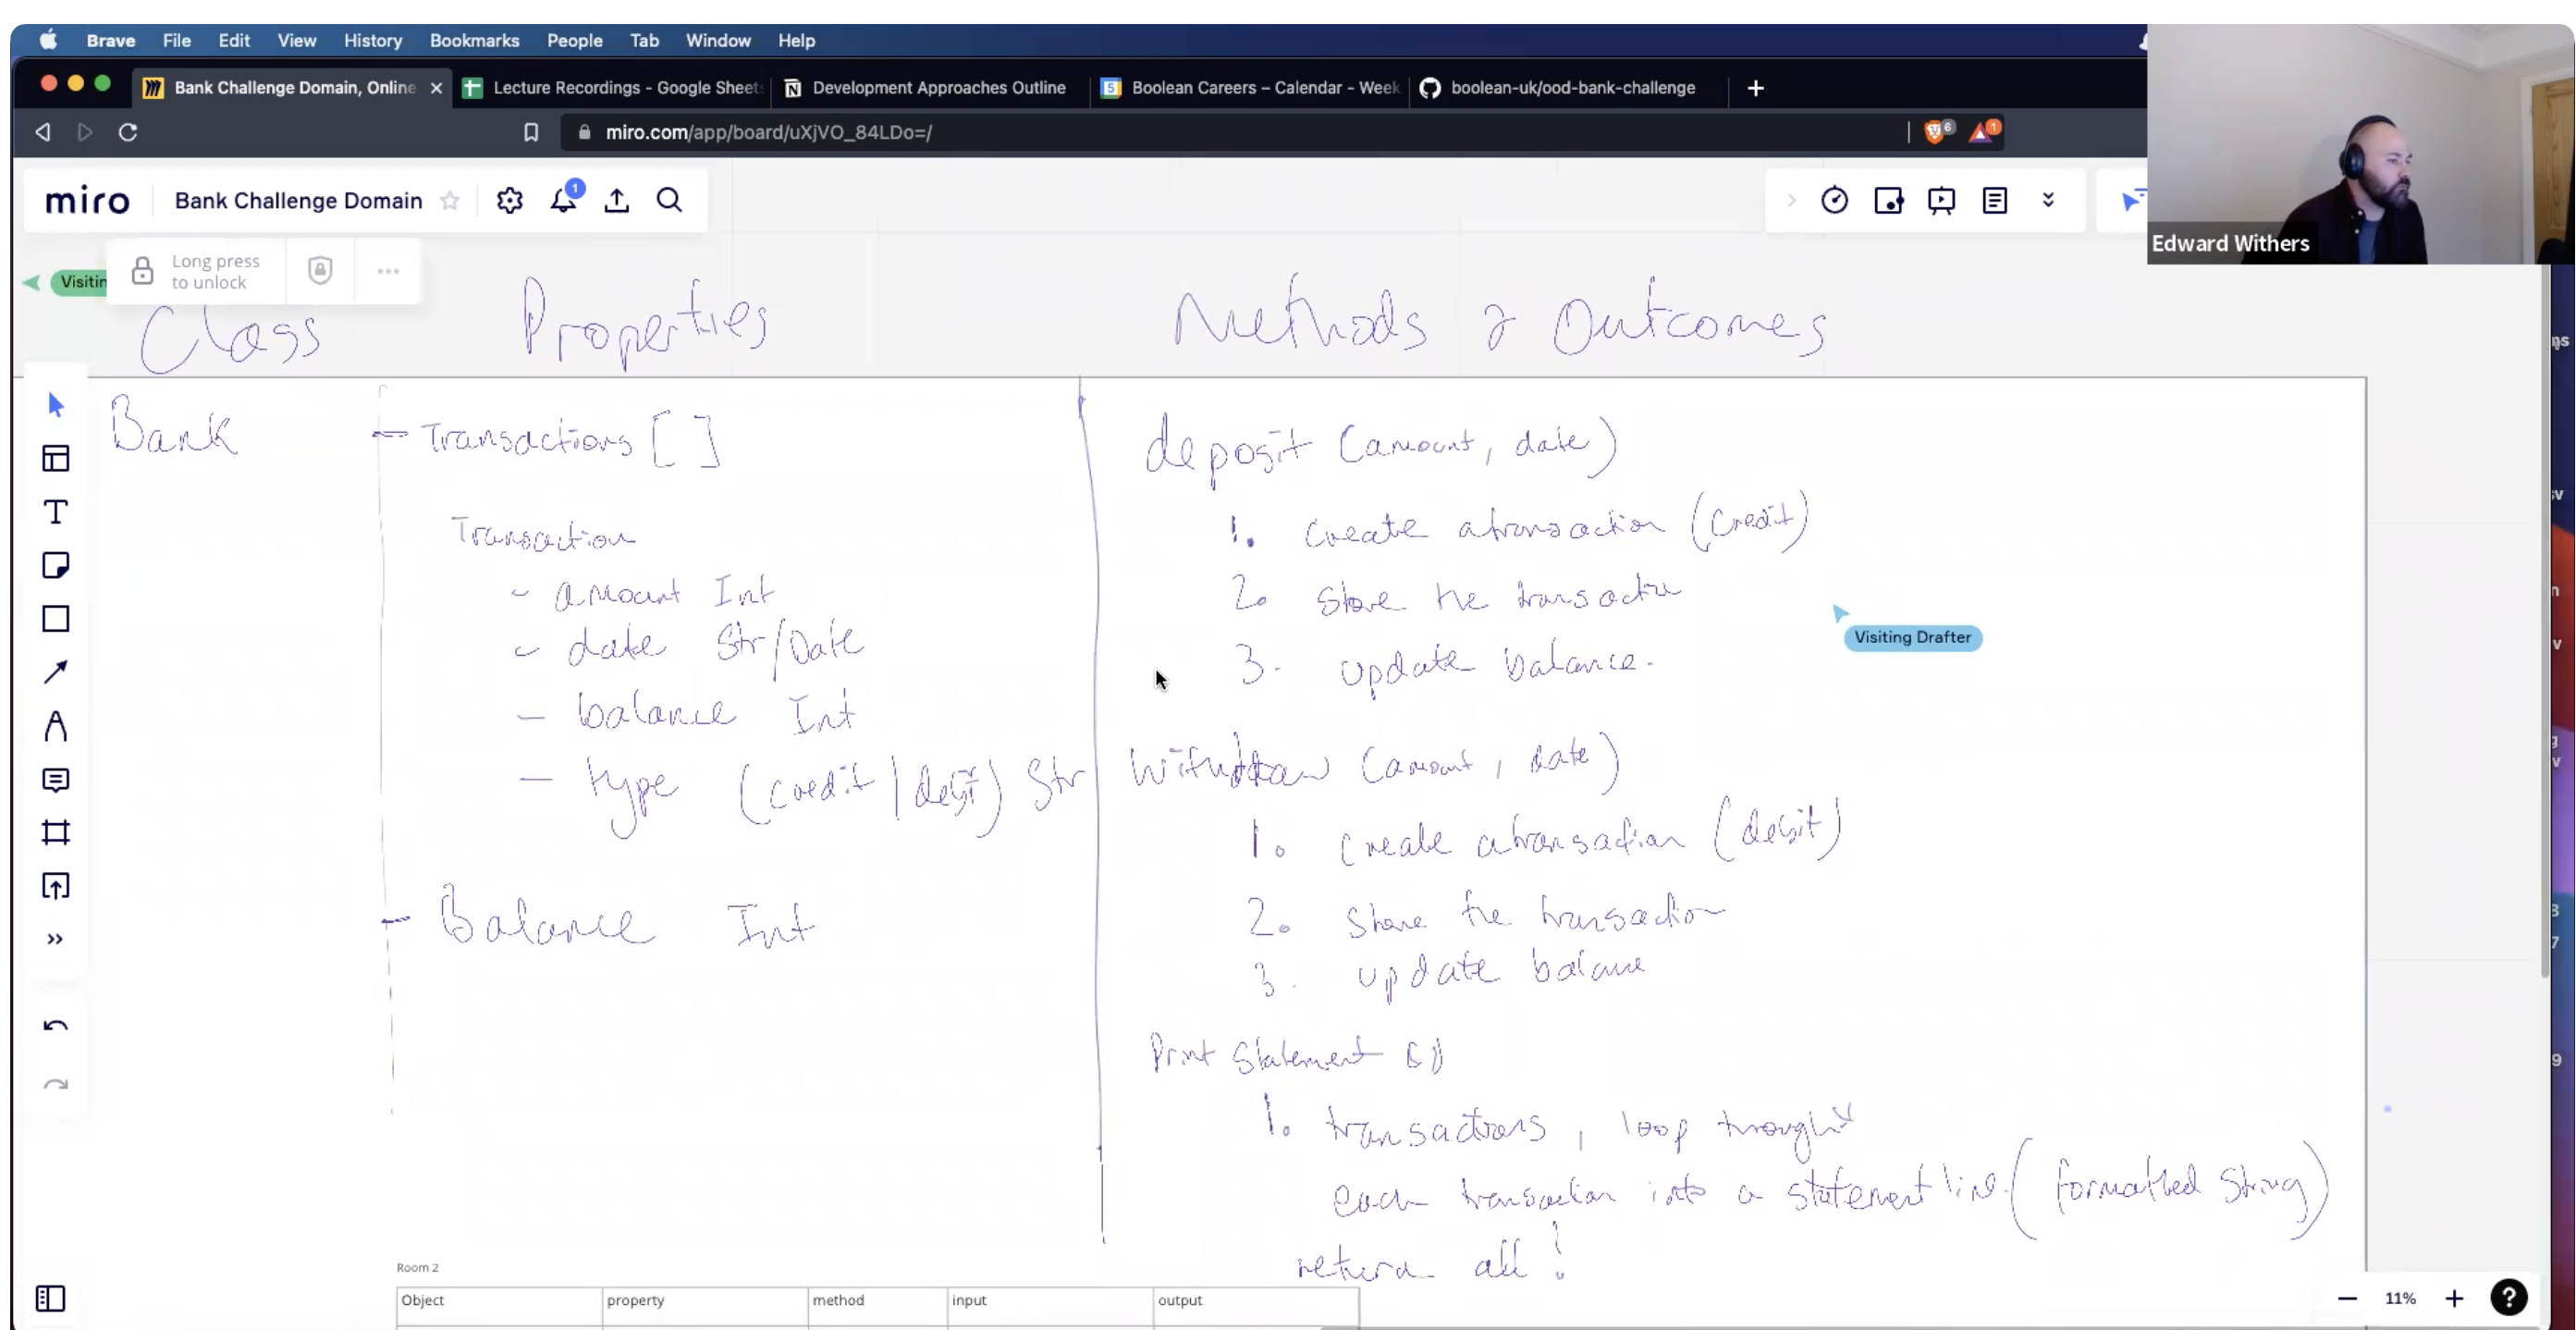 Brave File Edit View History Bookmarks People Tab Window Help
Bank Challenge Domain, Online
Lecture Recordings - Google Sheets
Development Approaches Outline
5 Boolean Careers – Calendar - Week
boolean-uk/ood-bank-challenge
miro.com/app/board/uXjVO_84LDo=/
6 1
miro Bank Challenge Domain 1
Edward Withers
Long press
to unlock
Visitin
Class Properties Methods & Outcomes
Bank
- Transactions [ ]
Transaction
- amount Int
- date Str/Date
- balance Int
- type (credit | debit) Str
- Balance Int
deposit (amount, date)
1. Create a transaction (credit)
2. Store the transaction
3. update balance.
Withdraw (amount, date)
1. Create a transaction (debit)
2. Store the transaction
3. update balance
Print Statement ()
1. transactions, loop through
each transaction into a statement line. (formatted String)
return all!
Visiting Drafter
Room 2
Object property method input output
11%
?